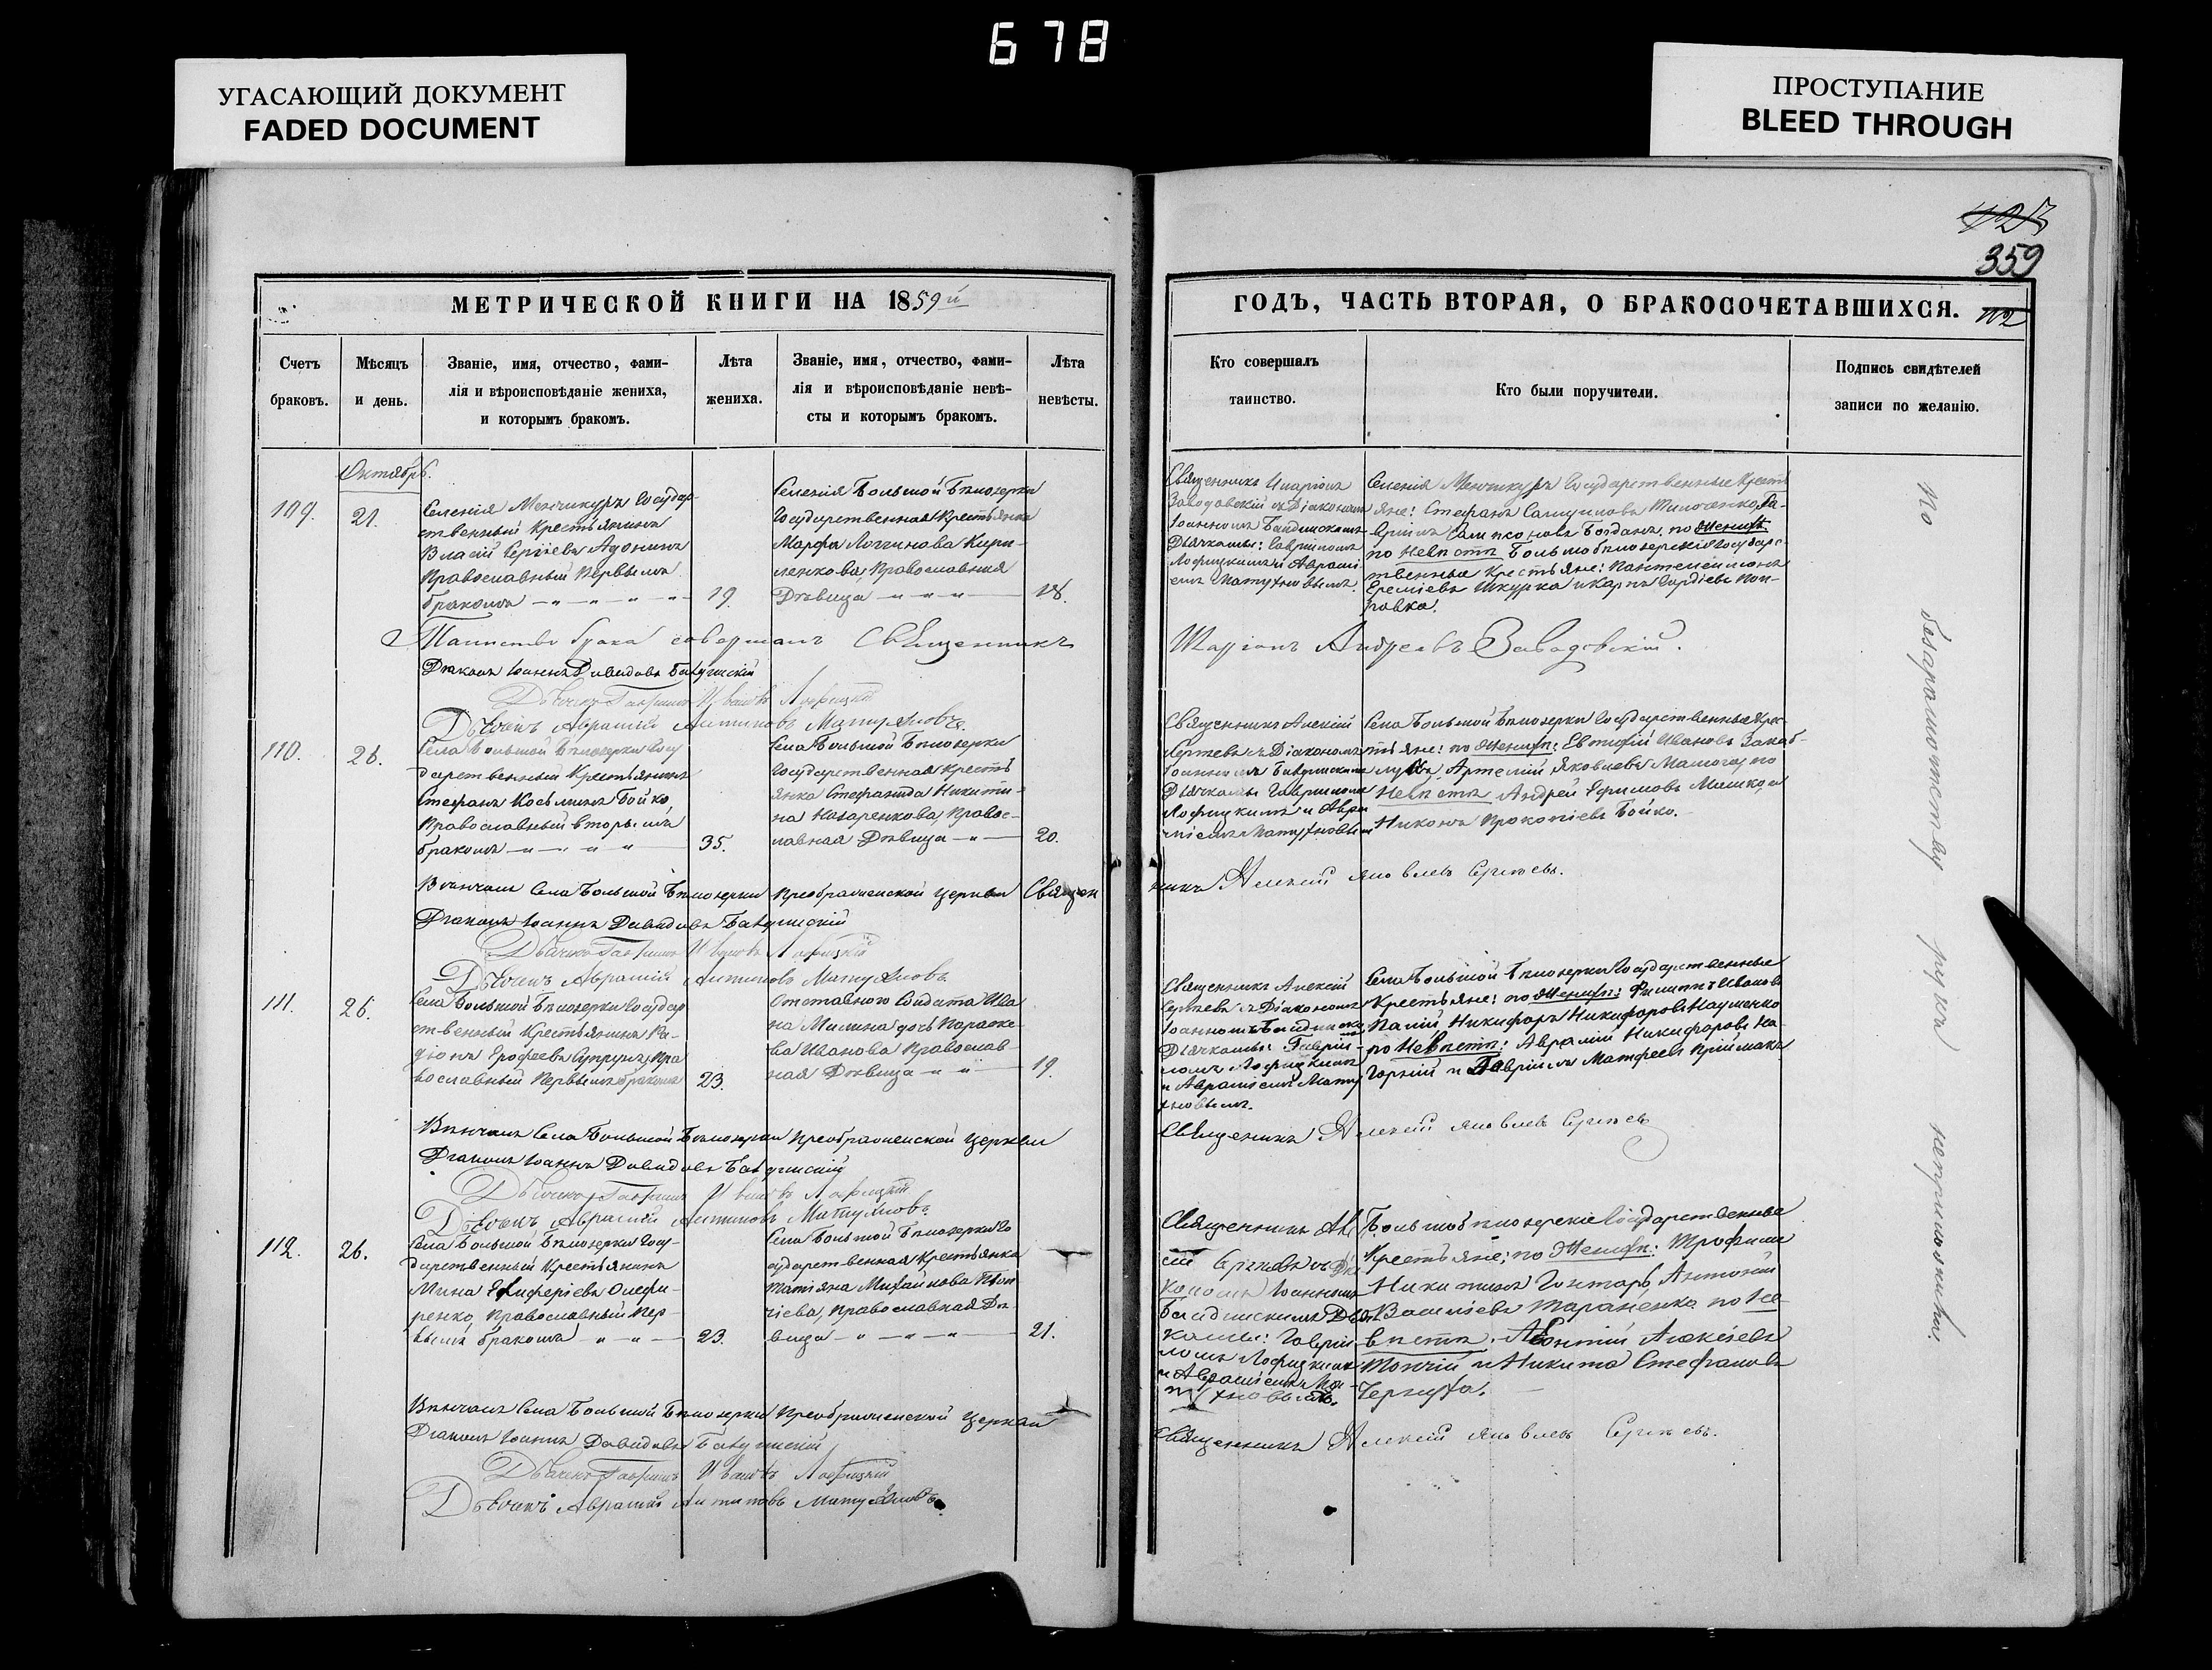 678
УГАСАЮЩИЙ ДОКУМЕНТ
FADED DOCUMENT
ПРОСТУПАНИЕ
BLEED THROUGH
359
МЕТРИЧЕСКОЙ КНИГИ НА 1859й
ГОДЪ, ЧАСТЬ ВТОРАЯ, О БРАКОСОЧЕТАВШИХСЯ.
Счетъ
браковъ.
Мѣсяцъ
и день.
Званіе, имя, отчество, фами-
лія и вѣроисповѣданіе жениха,
и которымъ бракомъ.
Лѣта
жениха.
Званіе, имя, отчество, фами-
лія и вѣроисповѣданіе невѣ-
сты и которымъ бракомъ.
Лѣта
невѣсты.
Кто совершалъ
таинство.
Кто были поручители.
Подпись свидѣтелей
записи по желанію.
Октябрь.
109.
21.
Селенія Менчикуръ Государ-
ственный Крестьянинъ
Власій Сергіевъ Адонинъ
Православный Первымъ
бракомъ
19.
Селенія Большой Бѣлозерки
Государственная Крестьянка
Марфа Логгинова Кири-
ленкова, Православная
Дѣвица
18.
Священникъ Иларіонъ
Заводовскій съ Діакономъ
Іоанномъ
Дьячками: Гавріиломъ
Лофицкимъ и Аврамі
емъ
Селенія Менчикуръ Государственные Кресть
яне: Стефанъ
Богданъ. по Женихѣ.
по Невѣстѣ Большобѣлозерскіе Государс-
твенные Крестьяне: Пантелеимонъ
Еремѣевъ Шкурка и Карпъ Гордѣевъ Поп-
ровка.
Таинство брака совершалъ Священникъ
Иларіонъ Андреевъ Заводовскій.
Діаконъ Іоаннъ Давидовъ
Дьячекъ Гавріилъ Ивановъ Лофицкій
Дьячекъ Аврамій Антиповъ
110.
26.
Села Большой Бѣлозерки Госу
дарственный Крестьянинъ
Стефанъ Косьминъ Бойко,
Православный вторымъ
бракомъ
35.
Села Большой Бѣлозерки
Государственная Кресть
янка Стефанида Никити-
на Назаренкова, Правос-
лавная Дѣвица
20.
Священникъ Алексій
Сергѣевъ съ Діакономъ
Іоанномъ
Дьячками Гавріиломъ
Лофицкимъ и Авра
міемъ
Села Большой Бѣлозерки Государственные Крес-
тьяне: по Женихѣ: Евтифій Ивановъ
Артемій Яковлевъ по
Невѣстѣ Андрей Ефимовъ Мишко, и
Никонъ Прокопіевъ Бойко.
Вѣнчалъ Села Большой Бѣлозерки Преображенской Церкви Священ
никъ Алексій Яковлевъ Сергѣевъ.
Діаконъ Іоаннъ Давидовъ
Дьячекъ Гавріилъ Ивановъ Лофицкій
Дьячекъ Аврамій Антиповъ
111.
26.
Села Большой Бѣлозерки Государ
ственный Крестьянинъ Ра-
діонъ Ерофеевъ Супрунъ, Пра
вославный Первымъ бракомъ
23.
Отставного Солдата Ива
на Милина дочь Параске-
ва Иванова Православ-
ная Дѣвица
19.
Священникъ Алексій
Сергѣевъ съ Діакономъ
Іоанномъ
Дьячками: Гаврій-
ломъ Лофицкимъ
и Авраміемъ
Села Большой Бѣлозерки Государственные
Крестьяне: по Женихѣ: Филиппъ Ивановъ
Палій, Никифоръ Никифоровъ Науменко
по Невѣстѣ: Аврамій Никифоровъ На-
горній и Гавріилъ Матфеевъ Пріймакъ
Вѣнчалъ Села Большой Бѣлозерки Преображенской Церкви
Священникъ Алексій Яковлевъ Сергѣевъ
Діаконъ Іоаннъ Давидовъ
Дьячекъ Гавріилъ Ивановъ Лофицкій
Дьячекъ Аврамій Антиповъ
112.
26.
Села Большой Бѣлозерки Госу-
дарственный Крестьянинъ
Мина Елиферіевъ Олефи-
ренко, Православный Пер-
вымъ бракомъ
23.
Села Большой Бѣлозерки Го
сударственная Крестьянка
Татіяна Михайлова
Православная Дѣ-
вица
21.
Священникъ Але
сій Сергѣевъ съ Діа
кономъ Іоанномъ
Дья
ками: Гаврій
ломъ Лофицкимъ
и Авраміемъ
Большобѣлозерскіе Государственные
Крестьяне; по Женихѣ: Трофимъ
Никитинъ Гонтарь, Антоній
Васильевъ Тараненко по Не
вѣстѣ. Леонтій Алексіевъ
Топчій и Никита Стефановъ
Чернуха.
Вѣнчалъ Села Большой Бѣлозерки Преображенской Церкви
Священникъ Алексій Яковлевъ Сергѣевъ.
Діаконъ Іоаннъ Давидовъ
Дьячекъ Гавріилъ Ивановъ Лофицкій
Дьячекъ Аврамій Антиповъ
По безграмотству руки неприложили.